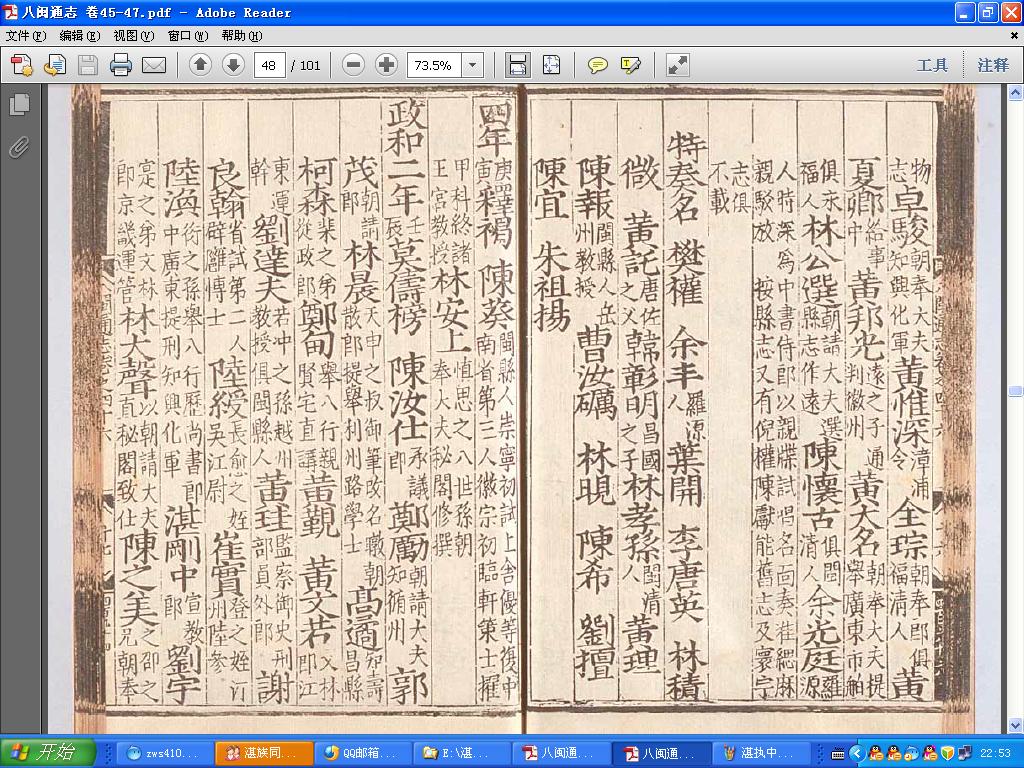 八闽通志 卷45-47.pdf - Adobe Reader
文件(F) 编辑(E) 视图(V) 窗口(W) 帮助(H)
48 / 101 73.5% 工具 注释
物
志 卓駿 朝奉大夫
知興化軍 黃惟深 漳浦
令 全琮 朝奉郎俱
福清人 黃
夏卿 給事
中 黃邦光 遠之子通
判徽州 黃大名 朝奉大夫提
舉廣東市舶
俱永
福人 林公選 朝請大夫選
縣志作遠 陳懷古 俱閩
清人 余光庭 羅
源
人時深為中書侍郎以親牒試唱名面奏准緦麻
親駁放 按縣志又有倪權陳獻能舊志及寰宇
志俱
不載
特奏名 樊權 余丰 羅源
人 葉開 李唐英 林積
徽 黃託 唐佐
之父 韓彰明 昌國
之子 林孝孫 閩清
人 黃理
陳報 閩縣人岳
州教授 曹汝礪 林晛 陳希 劉擅
陳宜 朱祖揚
四年 庚
寅 釋褐 陳葵 閩縣人崇寧初試上舍優等復中
南省第三人徽宗初臨軒策士擢
甲科終諸
王宮教授 林安上 慎思之八世孫朝
奉大夫秘閣修撰
政和二年 壬
辰 莫儔榜 陳汝仕 承議
郎 鄭勵 朝請大夫
知循州 郭
茂 朝請
郎 林晨 天申之叔御筆改名暾朝
散郎提舉利州路學士 高遹 知壽
昌縣
柯森 棐之弟
從政郎 鄭甸 舉八行親
賢宅直講 黃覲 黃文若 文林
郎江
東運
幹 劉達夫 若冲之孫越州
教授俱閩縣人 黃珪 監察御史刑
部員外郎 謝
良翰 省試第二人
辟廱博士 陸綬 長俞之姪
吳江尉 崔賓 登之姪汀
州陸參
陸渙 中衍之孫舉八行歷尚書郎
廣東提刑知興化軍 湛剛中 宣教
郎 劉宇
寔之弟文林
郎京畿運管 林大聲 以朝請大夫
直秘閣致仕 陳之美 之邵之
兄朝奉
开始 zws410... 湛族同... QQ邮箱... E:\湛... 八闽通... 八闽通... 湛执中... 22:53